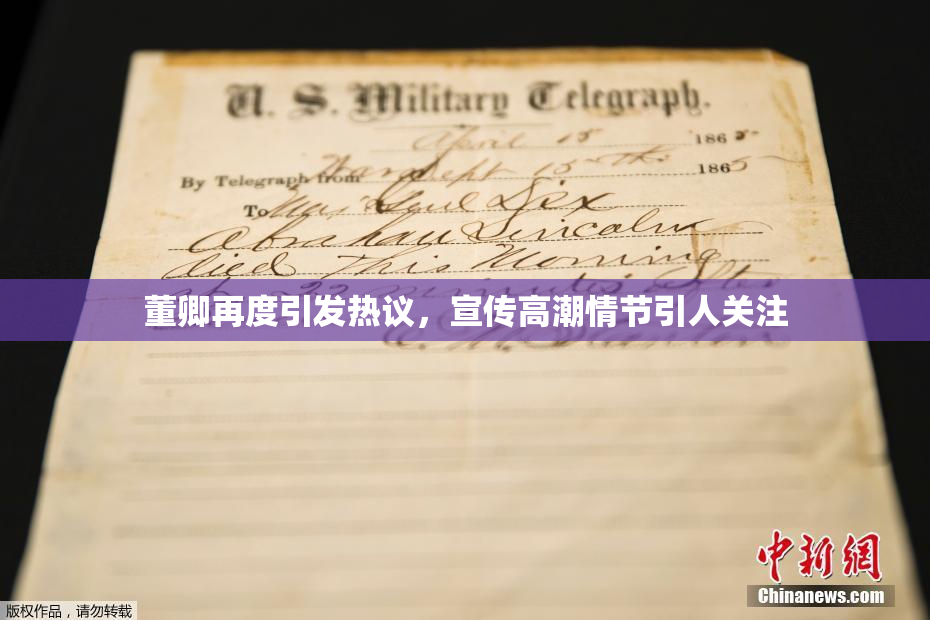 U. S. Military Telegraph.
April 15 1865.
By Telegraph from War Dept 15th 1865
To Maj Genl Dix
Abraham Lincoln
died This Morning
22 minutes after
董卿再度引发热议，宣传高潮情节引人关注
E. M. Stanton
中新網
Chinanews.com
版权作品，请勿转载